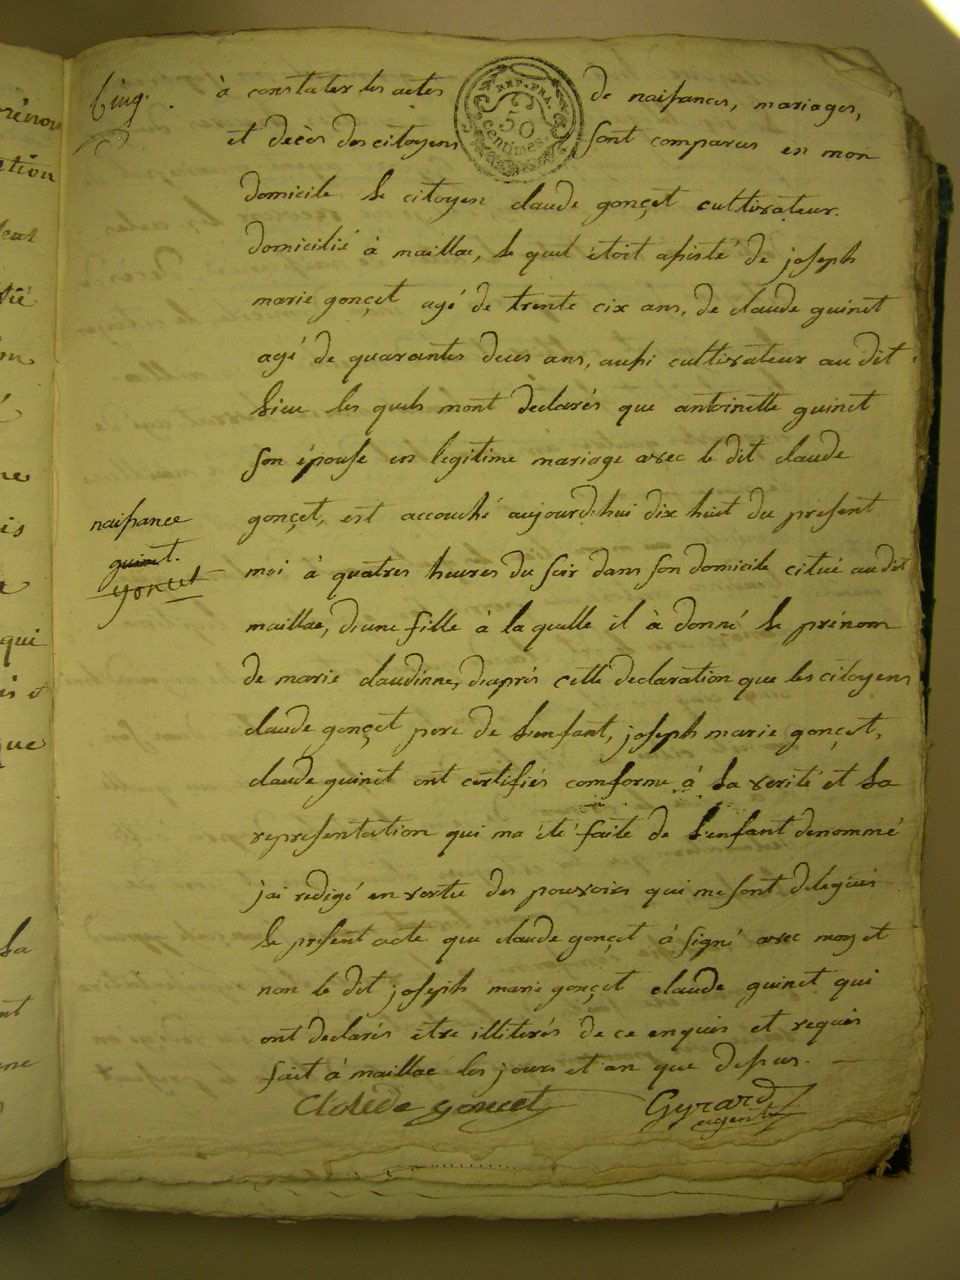 Cinq.
à constater les actes de naissances, mariages,
REP. FRA.
50
centimes
et decès des citoyens sont comparus en mon
domicile le citoyen claude gonçet cultivateur.
domicilié à maillac, le quel étoit assisté de joseph
marie gonçet agé de trente cix ans, de claude guinet
agé de quarantes deux ans, aussi cultivateur au dit
Lieu les quels mont declarés que antoinette guinet
son épouse en legitime mariage avec le dit claude
gonçet, est accouché aujourd'hui dix huit du present
naissance
guinet.
gonçet
moi à quatres heures du soir dans son domicile citué au dit
maillac, d'une fille à la quelle il à donné le prénom
de marie claudinne, d'aprés cette declaration que les citoyens
claude gonçet pere de L'enfant, joseph marie gonçet,
claude guinet ont certifiés comforme à La verité et La
representation qui ma été faite de L'enfant denommé
j'ai redigé en vertu des pouvoirs qui me sont delégués
le present acte que claude gonçet à signé avec moy et
non le dit joseph marie gonçet claude guinet qui
ont declarés etre illiterés de ce enquis et requis
fait à maillac les jours et an que dessus.
Clolede goncet
Gyrard
agent